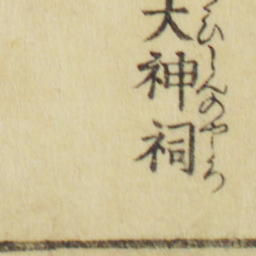 大神祠
ひしんのやしろ